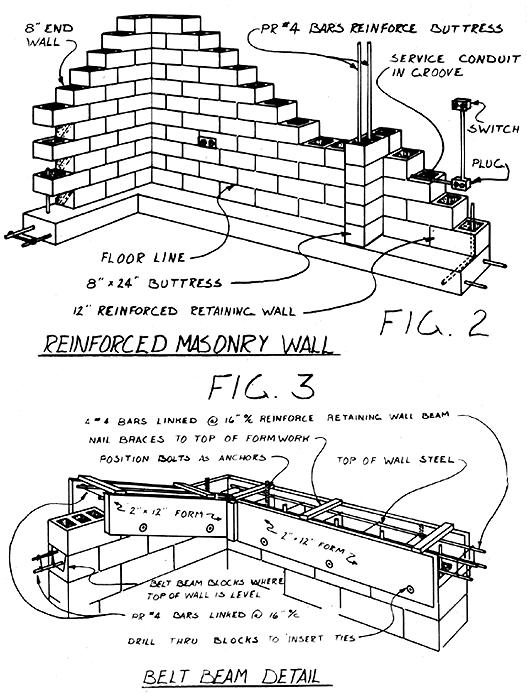 8" END
WALL
PR #4 BARS REINFORCE BUTTRESS
SERVICE CONDUIT
IN GROOVE
SWITCH
PLUG
FLOOR LINE
8" x 24" BUTTRESS
12" REINFORCED RETAINING WALL
FIG. 2
REINFORCED MASONRY WALL
FIG. 3
4 #4 BARS LINKED @ 16" o/c REINFORCE RETAINING WALL BEAM
NAIL BRACES TO TOP OF FORMWORK
POSITION BOLTS AS ANCHORS
TOP OF WALL STEEL
2" x 12" FORM
2" x 12" FORM
BELT BEAM BLOCKS WHERE
TOP OF WALL IS LEVEL
PR #4 BARS LINKED @ 16" o/c
DRILL THRU BLOCKS TO INSERT TIES
BELT BEAM DETAIL